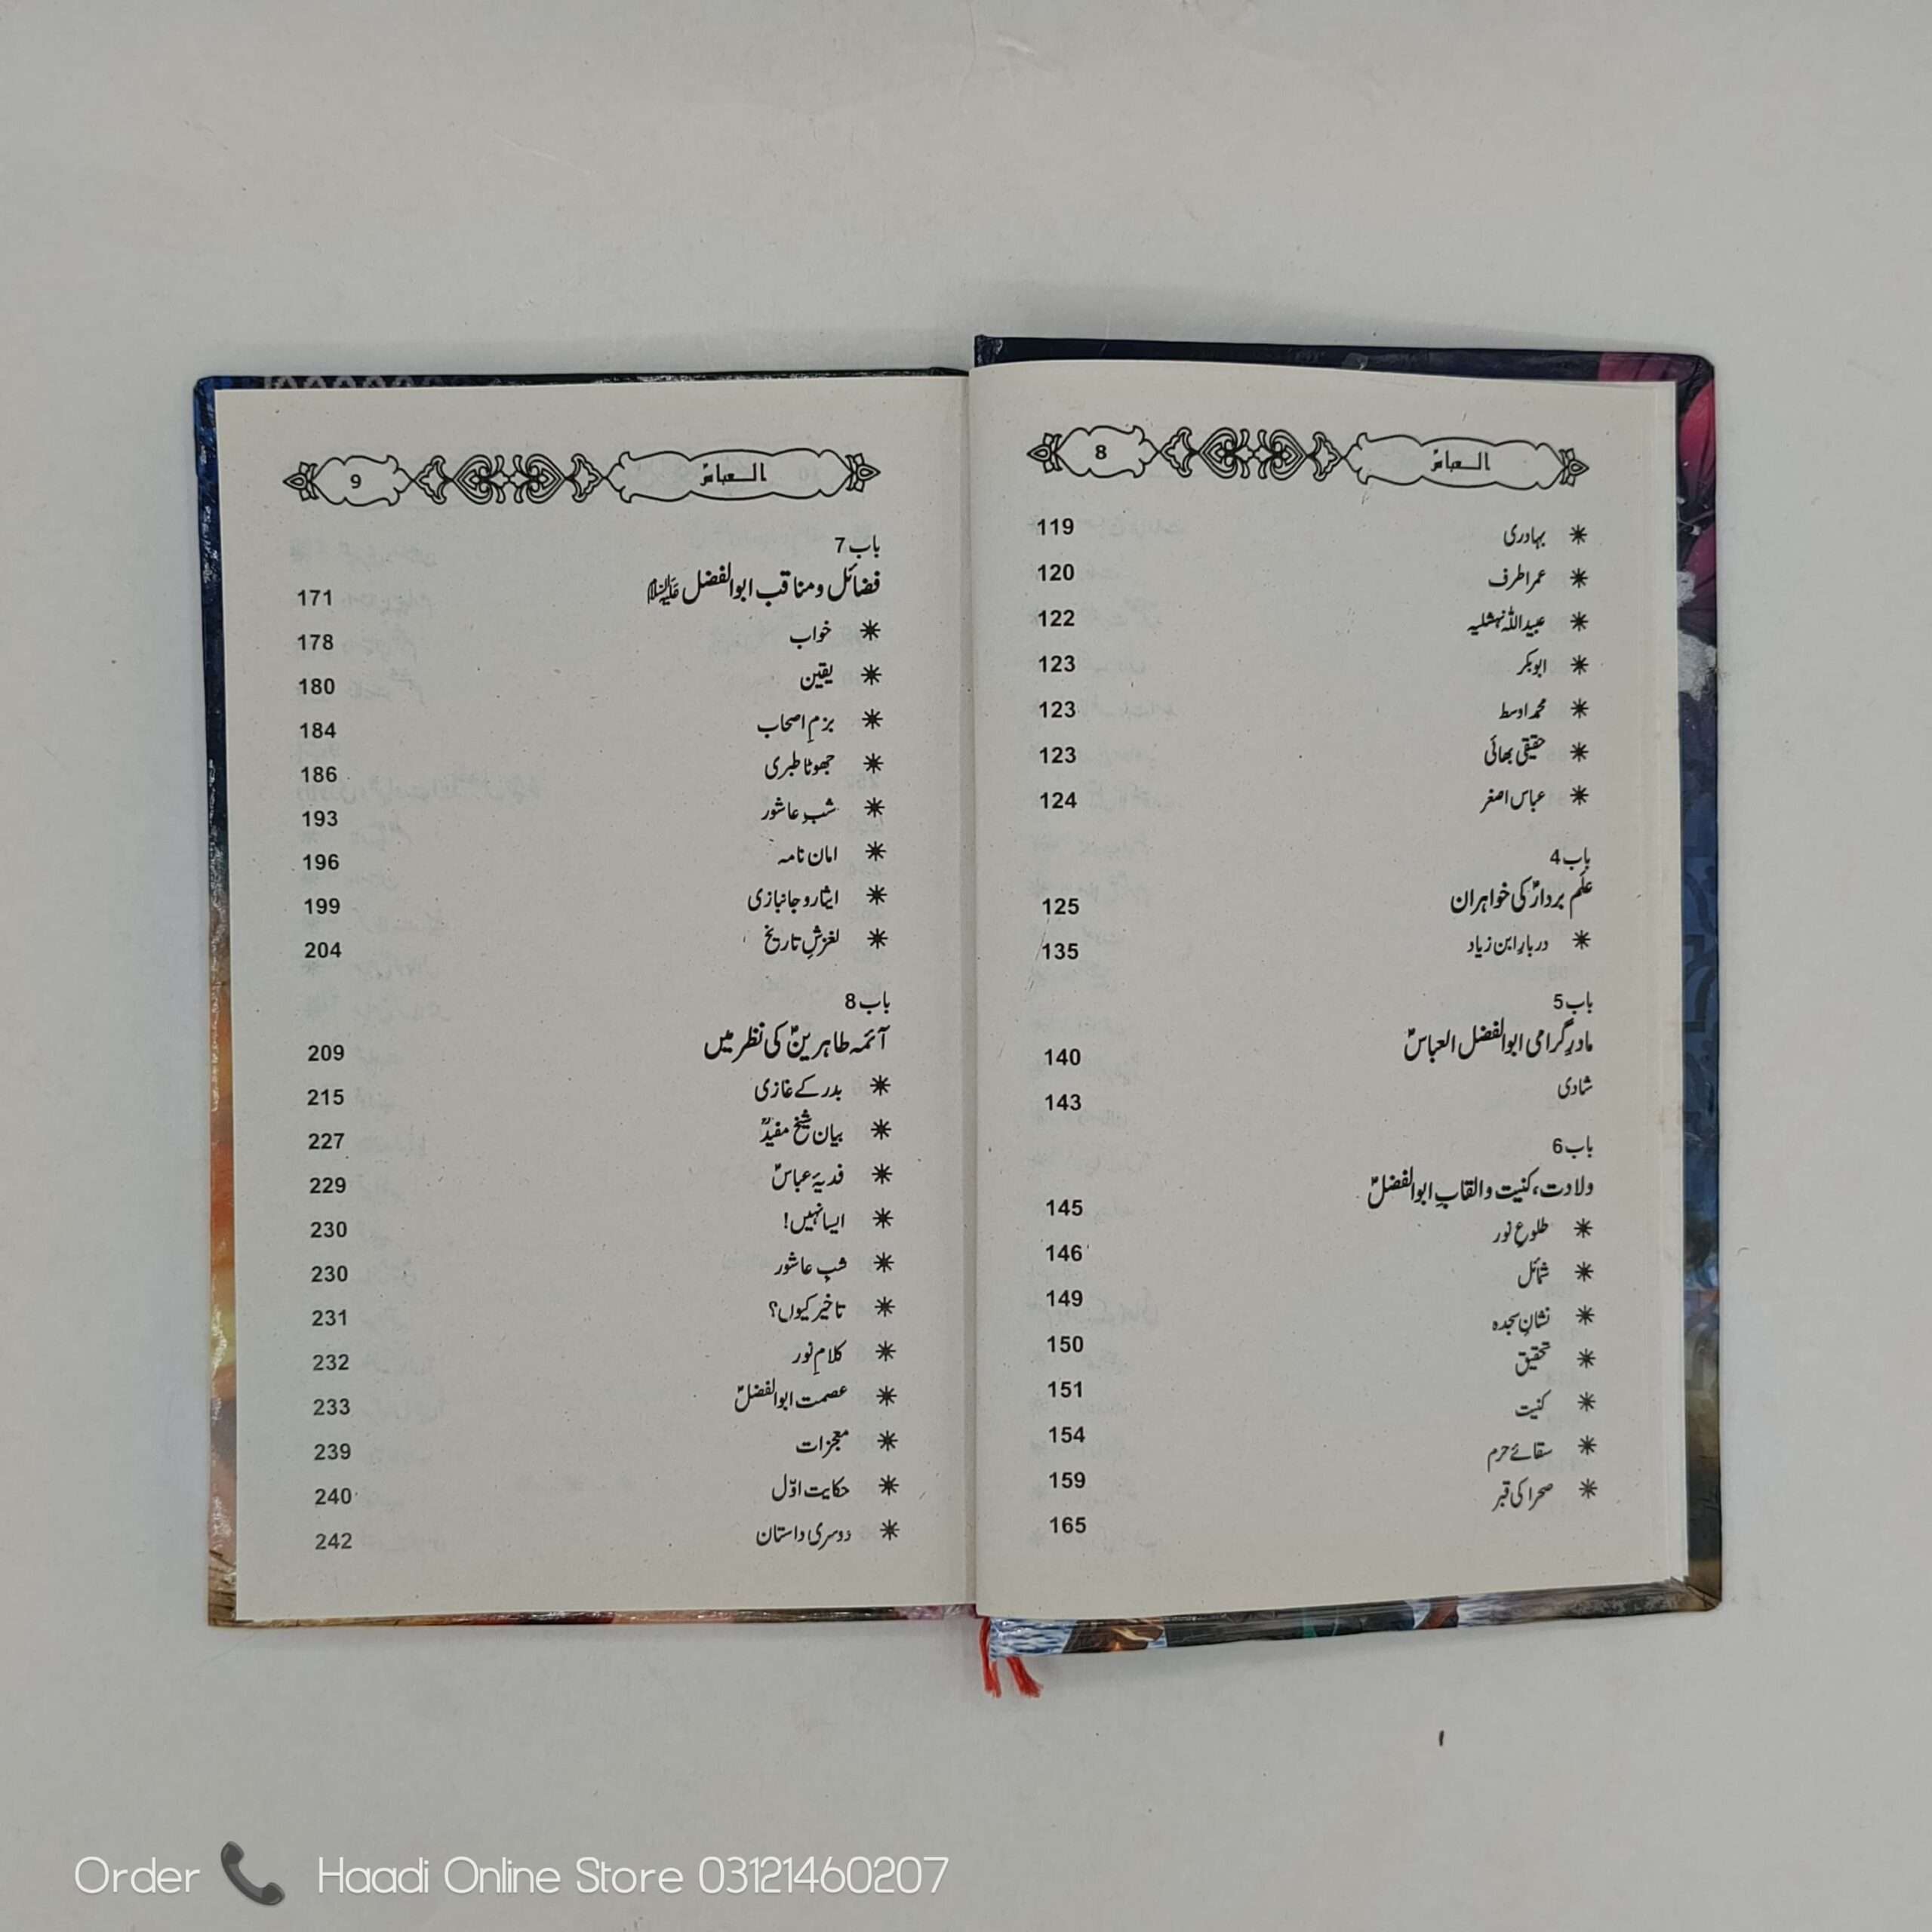 8 العباسؑ
بہادری 119
عمر اطرف 120
عبیداللہ نہشلیہ 122
ابوبکر 123
محمد اوسط 123
حقیقی بھائی 123
عباس اصغر 124
باب 4
علَم بردارؑ کی خواہران 125
دربارِ ابن زیاد 135
باب 5
مادرِ گرامی ابوالفضل العباسؑ 140
شادی 143
باب 6
ولادت، کنیت و القابِ ابوالفضلؑ 145
طلوعِ نور 146
شمائل 149
نشانِ سجدہ 150
تحقیق 151
کنیت 154
سقائے حرم 159
صحرا کی قبر 165
9 العباسؑ
باب 7
فضائل و مناقب ابوالفضل علیہ السلام 171
خواب 178
یقین 180
بزمِ اصحاب 184
جھوٹا طبری 186
شب عاشور 193
امان نامہ 196
ایثار و جانبازی 199
لغزشِ تاریخ 204
باب 8
آئمہ طاہرینؑ کی نظر میں 209
بدر کے غازی 215
بیان شیخ مفیدؒ 227
فدیۂ عباسؑ 229
ایسا نہیں! 230
شب عاشور 230
تاخیر کیوں؟ 231
کلامِ نور 232
عصمت ابوالفضلؑ 233
معجزات 239
حکایت اوّل 240
دوسری داستان 242
Order Haadi Online Store 03121460207